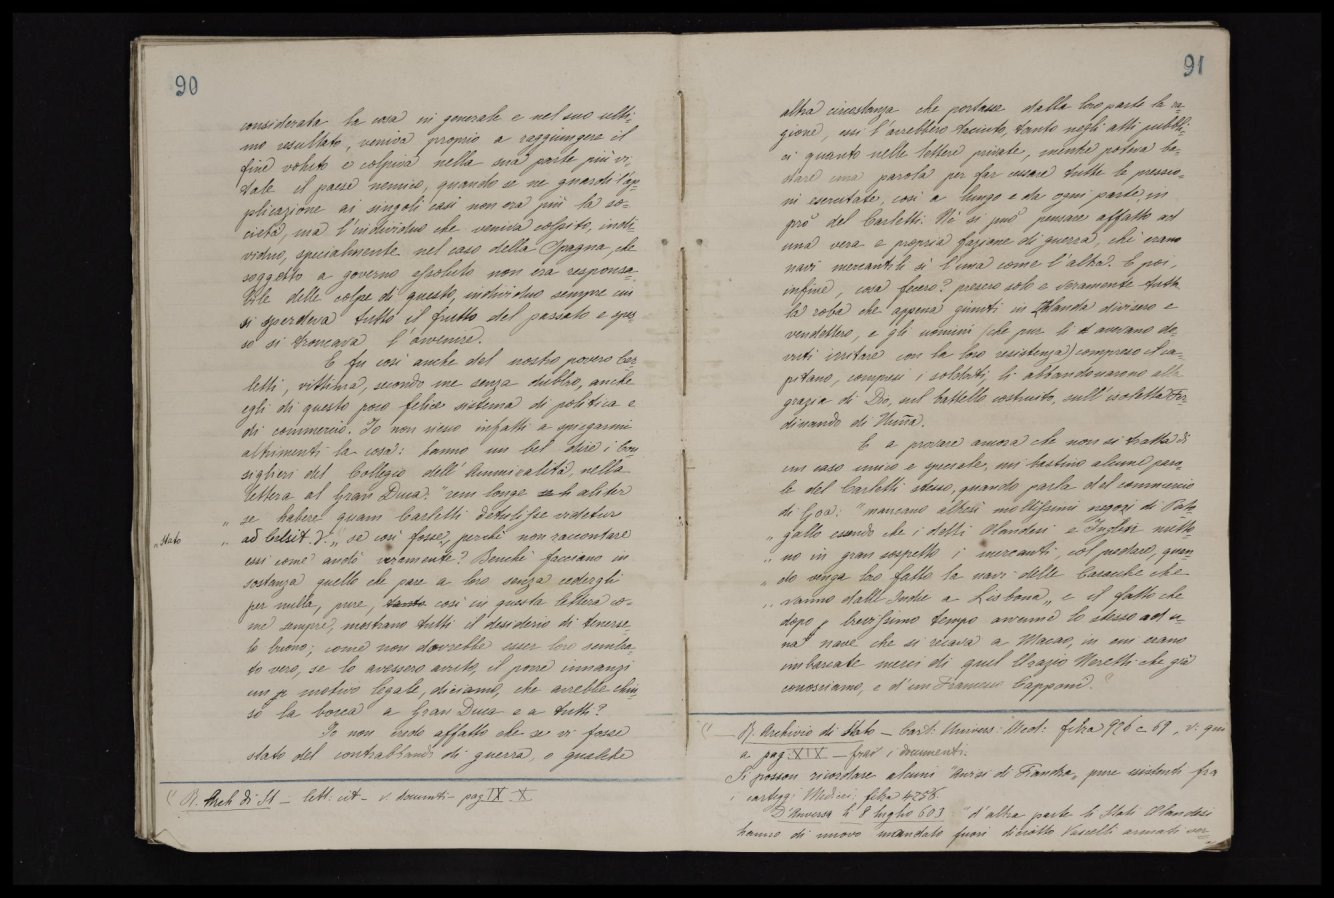 90
considerata la cosa in generale e nel suo ulti-
mo resultato, veniva proprio a raggiungere il
fine voluto e colpiva nella sua parte più vi-
tale il paese nemico, quando se ne guardi l'ap-
plicazione ai singoli casi non era più la so-
cietà, ma l'individuo che veniva colpito, indi-
viduo, specialmente nel caso della Spagna, che
soggetto a governo assoluto non era responsa-
bile delle colpe di questo, individuo sempre cui
si sperdeva tutto il frutto del passato e spes-
so si troncava l'avvenire.
E fu così anche del nostro povero Car-
letti, vittima, secondo me senza dubbio, anche
egli di questo poco felice sistema di politica e
di commercio. Io non riesco infatti a spiegarmi
altrimenti la cosa: hanno un bel dire i Con
siglieri del Collegio dell'Ammiralità, nella
lettera al Gran Duca: "rem longe aliter
„ se habere quam Carletti detulisse videtur
„ ad Celsit. V. „ se così fosse, perchè non raccontare
„ stato
essi come andò veramente? Benchè facciano in
sostanza quello che pare a loro senza cedergli
per nulla, pure, tanto così in questa lettera co-
me sempre, mostrano tutti il desiderio di tenerse-
lo buono; come non dovrebbe esser loro sembra-
to vero, se lo avessero avuto, il porre innanzi
un motivo legale, diciamo, che avrebbe chiu
so la bocca a Gran Duca e a tutti?
Io non credo affatto che se vi fosse
stato del contrabbando di guerra, o qualche
(¹ R. Arch di St — lett: cit — v. documti — pag IX - X
91
altra circostanza che portasse dalla loro parte la ra-
gione, essi l'avrebbero taciuto, tanto negli atti pubbli-
ci quanto nelle lettere private, mentre poteva ba-
stare una parola per far cessare tutte le pressio-
ni esercitate, così a lungo e da ogni parte, in
pro' del Carletti. Nè si può pensare affatto ad
una vera e propria fazione di guerra, chè erano
navi mercantili sì l'una come l'altra. E poi,
infine, cosa fecero? presero solo e veramente tutta
la roba che appena giunti in Olanda divisero e
vendettero, e gli uomini (che pur li avevano do
vuti irritare con la loro resistenza) compreso il ca-
pitano, compresi i soldati, li abbandonarono alla
grazia di Dio, sul battello costruito, sull'isoletta Fer-
dinando di Nuña.
E a provare ancora che non si tratta di
un caso unico e speciale, mi bastino alcune paro-
le del Carletti stesso, quando parla del commercio
di Goa: "mancano altresì moltissimi negozi di Por
„ gallo essendo che i detti Olandesi e Inglesi metto-
„ no in gran sospetto i mercanti, col predare, quan-
„ do venga loro fatto la navi delle Caracche che
„ vanno dall'Indie a Lisbona„ e il fatto che
dopo brevissimo tempo avvenne lo stesso ad u-
na nave che si recava a Macao, in cui erano
imbarcate merci di quel Orazio Neretti che già
conosciamo, e d'un Francesco Capponi. (¹
(¹ — R. Archivio di Stato — Cart: Univers: Med: filza 926 c 69, v: qui
a pag. XIX — frai i documenti.
Si posson ricordare alcuni "Avvisi di Fiandra„ pure esistenti fra
i carteggi Medicei. filza 4256.
D'Anversa li 8 luglio 603 "d'altra parte li Stati Olandesi
hanno di nuovo mandato fuori diciotto Vascelli armati ver-